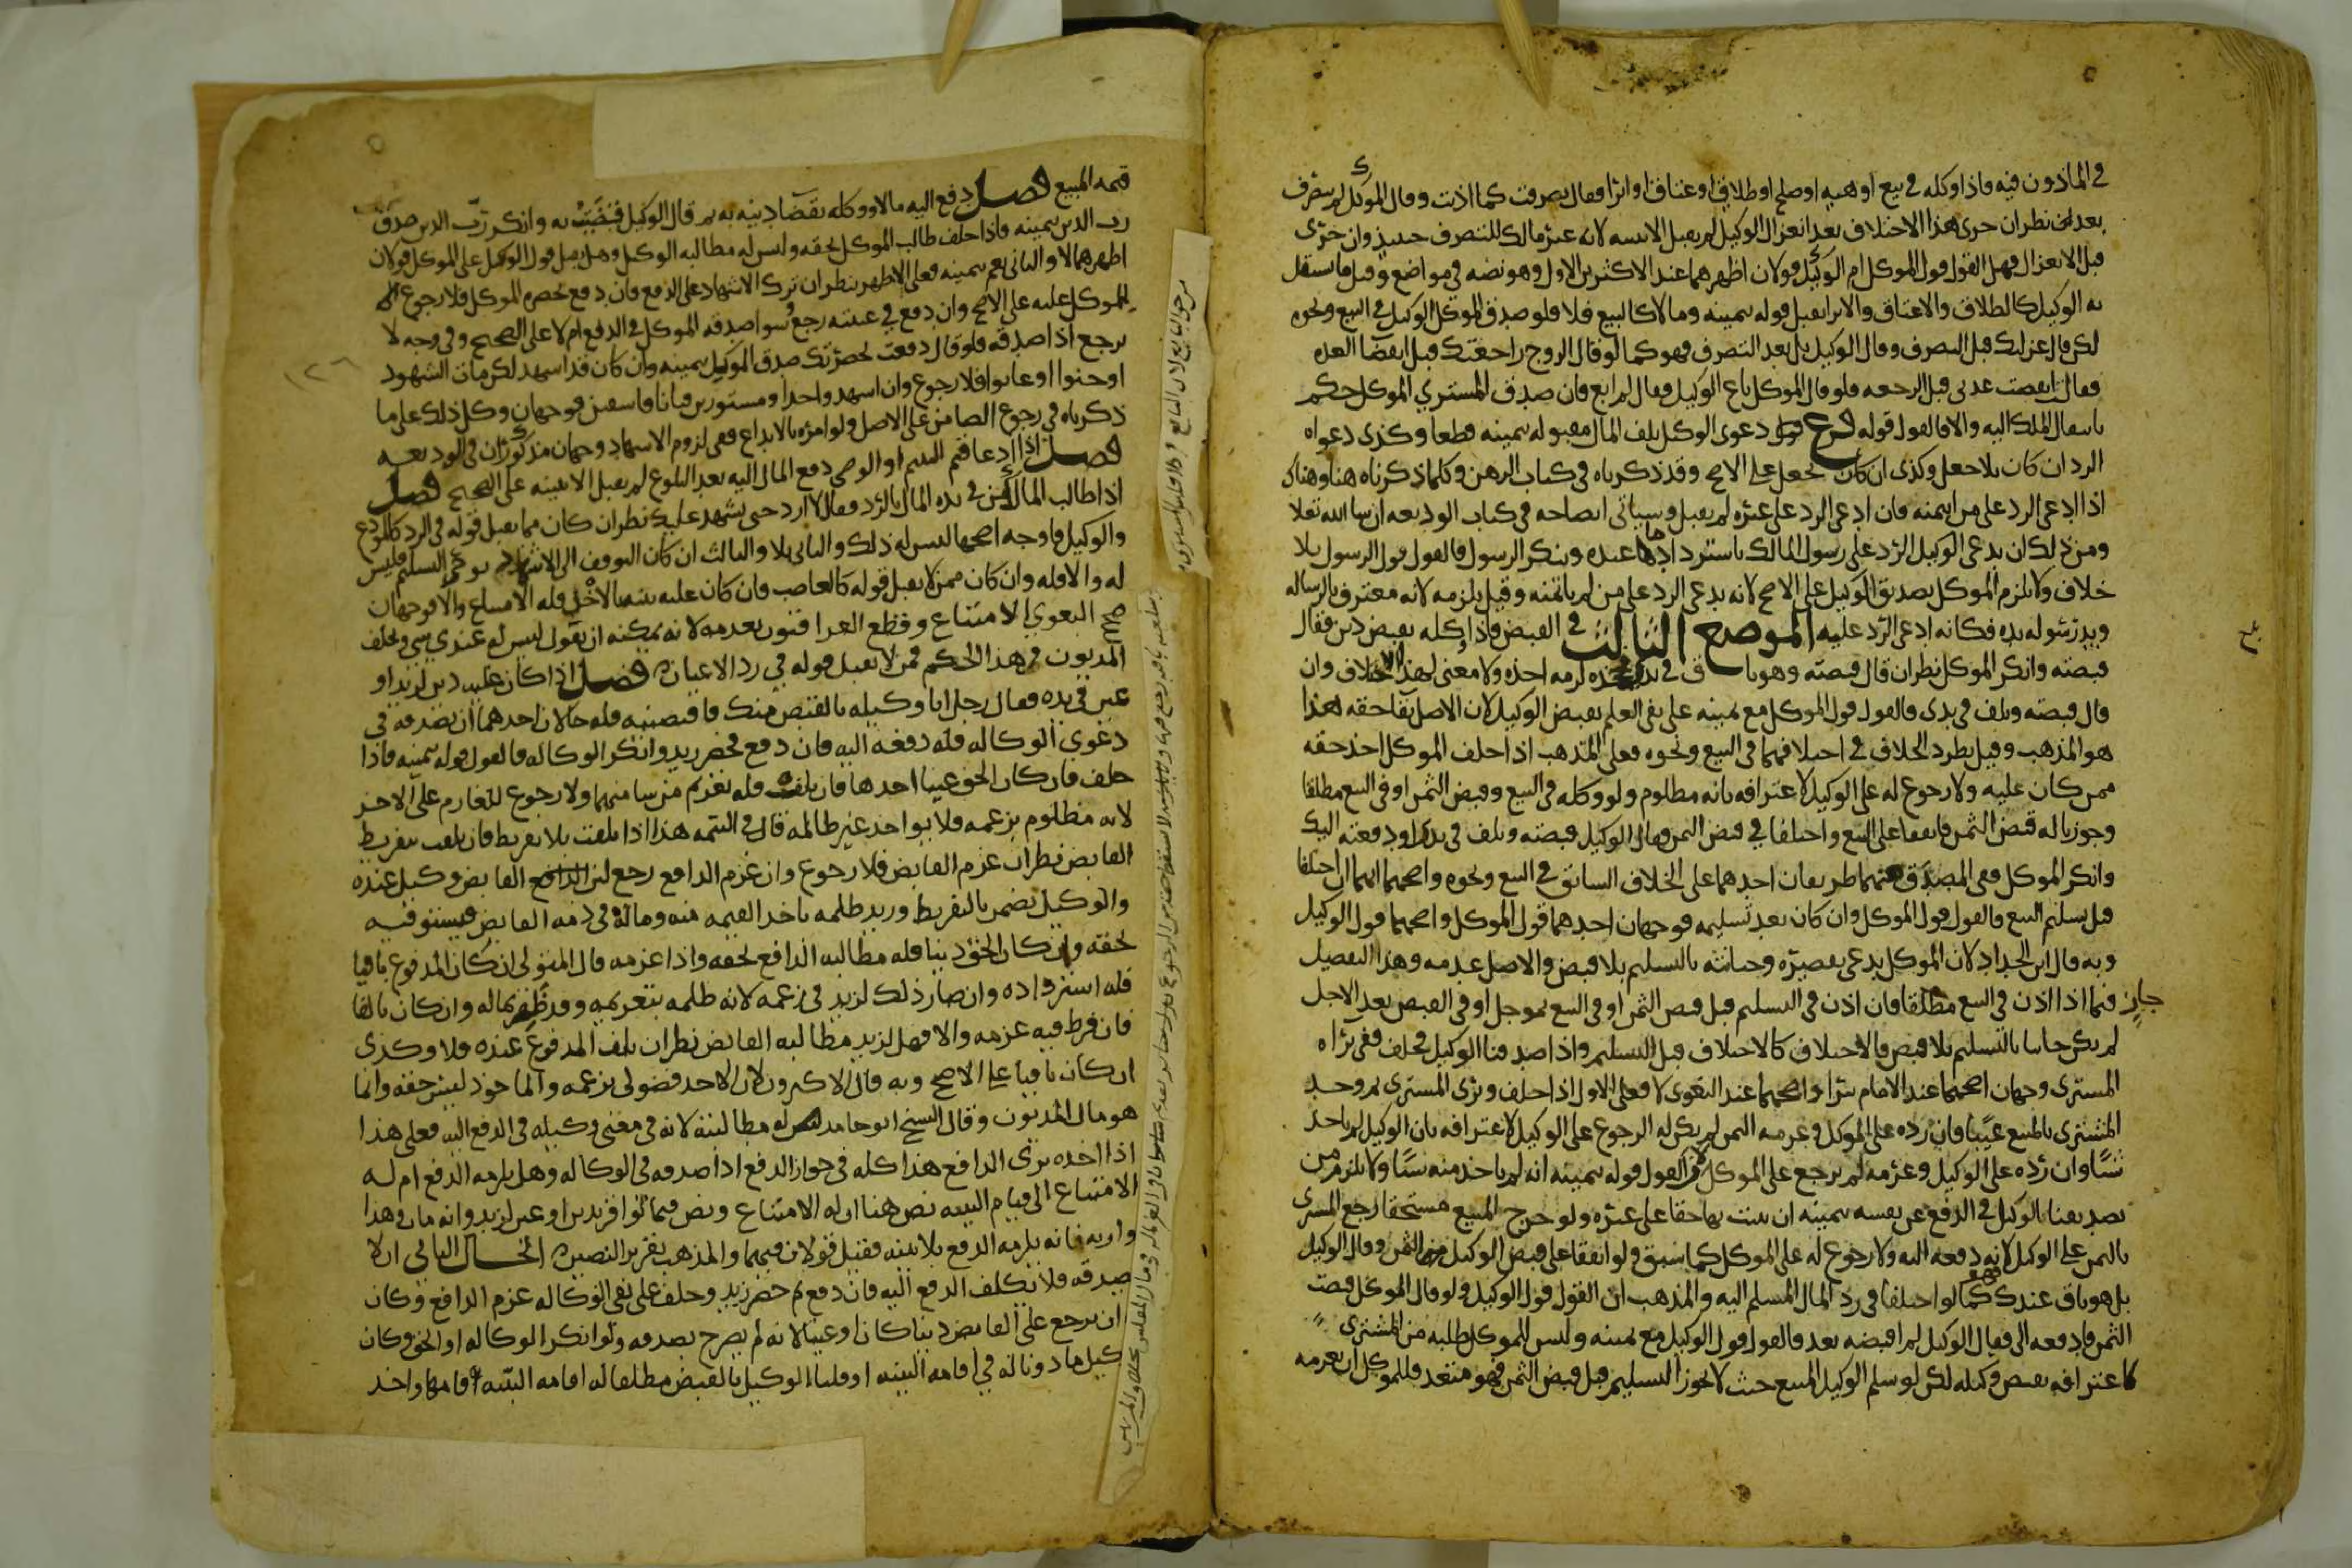 في المأذون فيه فاذا وكله في بيع او هبه او صلح او طلاق او عتاق او ابرا فقال تصرفت كما اذنت وقال الموكل لم يتصرف
بعد نظر ان جرى هذا الاختلاف بعد انعزال الوكيل لم يقبل الا ببينه لانه غير مالك للتصرف حينيذ وان جرى
قبل الانعزال فهل القول قول الموكل ام الوكيل قولان اظهرهما عند الاكثرين الاول وهو نصه في مواضع وقيل ما يستقل
به الوكيل كالطلاق والاعتاق والابرا يقبل قوله بيمينه وما لا كالبيع فلا فلو صدق الموكل الوكيل في البيع ونحوه
لكن قال عزلتك قبل التصرف وقال الوكيل بل بعد التصرف فهو كما لو قال الزوج راجعتك قبل انقضا العده
فقالت انقضت عدتي قبل الرجعه فلو قال الموكل باع الوكيل وقال لم ابع فان صدق المشتري الموكل حكم
بانتقال الملك اليه والا فالقول قوله فرع دعوى الوكيل تلف المال مقبوله بيمينه قطعا وكذى دعواه
الرد ان كان بلا جعل وكذى ان كان بجعل على الاصح وقد ذكرناه في كتاب الرهن وكلما ذكرناه هنا وهناك
اذا ادعى الرد على من ايتمنه فان ادعى الرد على غيره لم يقبل وسياتي ايضاحه في كتاب الوديعه ان شا الله تعلا
ومن ذلك ان يدعى الوكيل الرد على رسول المالك باسترداد ما عنده وينكر الرسول فالقول قول الرسول بلا
خلاف ولا يلزم الموكل تصديق الوكيل على الاصح لانه يدعى الرد على من لم ياتمنه وقيل يلزمه لانه معترف بالرساله
ويد رسوله يده فكانه ادعى الرد عليه الموضع الثالث في القبض فاذا وكله بقبض دين فقال
قبضته وانكر الموكل نظر ان قال قبضته وهو باق في يدي فخذه لزمه اخذه ولا معنى لهذا الاختلاف وان
قال قبضته وتلف في يدى فالقول قول الموكل مع يمينه على نفى العلم بقبض الوكيل لان الاصل بقا حقه هذا
هو المذهب وقيل بطرد الخلاف في اختلافهما في البيع ونحوه فعلى المذهب اذا حلف الموكل اخذ حقه
ممن كان عليه ولا رجوع له على الوكيل لاعترافه بانه مظلوم ولو وكله في البيع وقبض الثمن او في البيع مطلقا
وجوزنا له قبض الثمن فاتفقا على البيع واختلفا في قبض الثمن وقال الوكيل قبضته وتلف في يدى او دفعته اليك
وانكر الموكل ففى المصدق منهما طريقان احدهما على الخلاف السابق في البيع ونحوه واصحهما انهما ان اختلفا
قبل تسليم المبيع فالقول قول الموكل وان كان بعد تسليمه فوجهان احدهما قول الموكل واصحهما قول الوكيل
وبه قال ابن الحداد لان الموكل يدعى تقصيره وخيانته بالتسليم بلا قبض والاصل عدمه وهذا التفصيل
جار فيما اذا اذن في البيع مطلقا فان اذن في التسليم قبل قبض الثمن او في البيع بموجل او في القبض بعد الاجل
لم يكن خاينا بالتسليم بلا قبض فالاختلاف كالاختلاف قبل التسليم واذا صدقنا الوكيل فحلف ففى براه
المشترى وجهان اصحهما عند الامام يبرا واصحهما عند البغوى لا فعلى الاول اذا حلف وبرى المشترى ثم وجد
المشترى بالمبيع عيبا فان رده على الموكل وغرمه الثمن لم يكن له الرجوع على الوكيل لاعترافه بان الوكيل لم ياخذ
شيا وان رده على الوكيل وغرمه لم يرجع على الموكل والقول قوله بيمينه انه لم ياخذ منه شيا ولا يلزم من
تصديقنا الوكيل في الدفع عن نفسه بيمينه ان يثبت بها حقا على غيره ولو خرج المبيع مستحقا رجع المشترى
بالثمن على الوكيل لانه دفعه اليه ولا رجوع له على الموكل كما سبق ولو اتفقا على قبض الوكيل الثمن وقال الوكيل
بل هو باق عندك فهو كما لو اختلفا في رد المال المسلم اليه والمذهب ان القول قول الوكيل ولو قال الموكل قبضت
الثمن فادفعه الى فقال الوكيل لم اقبضه بعد فالقول قول الوكيل مع يمينه وليس للموكل طلبه من المشترى
لاعترافه بقبض وكيله لكن لو سلم الوكيل المبيع حيث لا يجوز التسليم قبل قبض الثمن فهو متعد فللموكل ان يغرمه
قيمه المبيع فصل دفع اليه مالا ووكله بقضا دينه به ثم قال الوكيل قضيت به وانكر رب الدين صدق
رب الدين بيمينه فاذا حلف طالب الموكل بحقه وليس له مطالبه الوكيل وهل يقبل قول الوكيل على الموكل قولان
اظهرهما لا والثانى نعم بيمينه فعلى الاظهر ينظر ان ترك الاشهاد على الدفع فان دفع بحضره الموكل فلا رجوع
للموكل عليه على الاصح وان دفع في غيبته رجع وسوا صدقه الموكل في الدفع ام لا على الصحيح وفي وجه لا
يرجع اذا صدقه فلو قال دفعت بحضرتك صدق الموكل بيمينه وان كان قد اشهد لكن مات الشهود
او جنوا او غابوا فلا رجوع وان اشهد واحدا او مستورين فبانا فاسقين فوجهان وكل ذلك على ما
ذكرناه في رجوع الضامن على الاصيل ولو امره بالايداع ففى لزوم الاشهاد وجهان مذكوران في الوديعه
فصل اذا ادعا قيم اليتيم او الوصى دفع المال اليه بعد البلوغ لم يقبل الا ببينه على الصحيح فصل
اذا طالب المالك من في يده المال بالرد فقال لا ارد حتى تشهد عليك نظر ان كان مما يقبل قوله في الرد كالمودع
والوكيل فاوجه اصحها ليس له ذلك والثانى بلا والثالث ان كان التوقف الى الاشهاد يوخر التسليم فليس
له والا فله وان كان ممن لا يقبل قوله كالغاصب فان كان عليه بينه بالاخذ فله الامتناع والا فوجهان
صح البغوى الامتناع وقطع العراقيون بعدمه لانه يمكنه ان يقول ليس له عندى شى ويحلف
المديون في هذا الحكم كمن لا يقبل قوله في رد الاعيان فصل اذا كان عليه دين لزيد او
عين في يده فقال رجل انا وكيله بالقبض منك فاقبضنيه فله حالان احدهما ان يصدقه في
دعوى الوكاله فله دفعه اليه فان دفع فحضر زيد وانكر الوكاله فالقول قوله بيمينه فاذا
حلف فان كان الحق عينا اخدها فان تلفت فله تغريم من شا منهما ولا رجوع للغارم على الاخر
لانه مظلوم بزعمه فلا يواخذ غير ظالمه قال في التتمه هذا اذا تلفت بلا تفريط فان تلفت بتفريط
القابض نظر ان غرم القابض فلا رجوع وان غرم الدافع رجع لان القابض وكيل عنده
والوكيل يضمن بالتفريط وزيد ظلمه باخذ القيمه منه وماله في ذمه القابض فيستوفيه
بحقه وان كان الحق دينا فله مطالبه الدافع بحقه واذا غرمه قال المتولى ان كان المدفوع باقيا
فله استرداده وان صار ذلك لزيد في زعمه لانه ظلمه بتغريمه وقد ظفر بماله وان كان تالفا
فان فرط فيه غرمه والا فهل لزيد مطالبه القابض نظر ان تلف المدفوع عنده فلا وكذى
ان كان باقيا على الاصح وبه قال الاكثرون لان الاخد فضولى بزعمه والماخوذ ليس حقه وانما
هو مال المديون وقال الشيخ ابو حامد له مطالبته لانه في معنى وكيله في الدفع اليه فعلى هذا
اذا اخذه برى الدافع هذا كله في جواز الدفع اذا صدقه في الوكاله وهل يلزمه الدفع ام له
الامتناع الى قيام البينه نص هنا ان له الامتناع ونص فيما لو اقر بدين او عين لزيد وانه مات وهذا
وارثه فانه يلزمه الدفع بلا بينه فقيل قولان فيهما والمذهب تقرير النصين الحال الثانى ان لا
يصدقه فلا يكلف الدفع اليه فان دفع ثم حضر زيد وحلف على نفى الوكاله غرم الدافع وكان
ان يرجع على القابض دينا كان او عينا لانه لم يصرح بصدقه ولو انكر الوكاله او الحق وكان
كيل ماذونا له في اقامه البينه او قلنا الوكيل بالقبض مطلقا له اقامه البينه اقامها واخذ